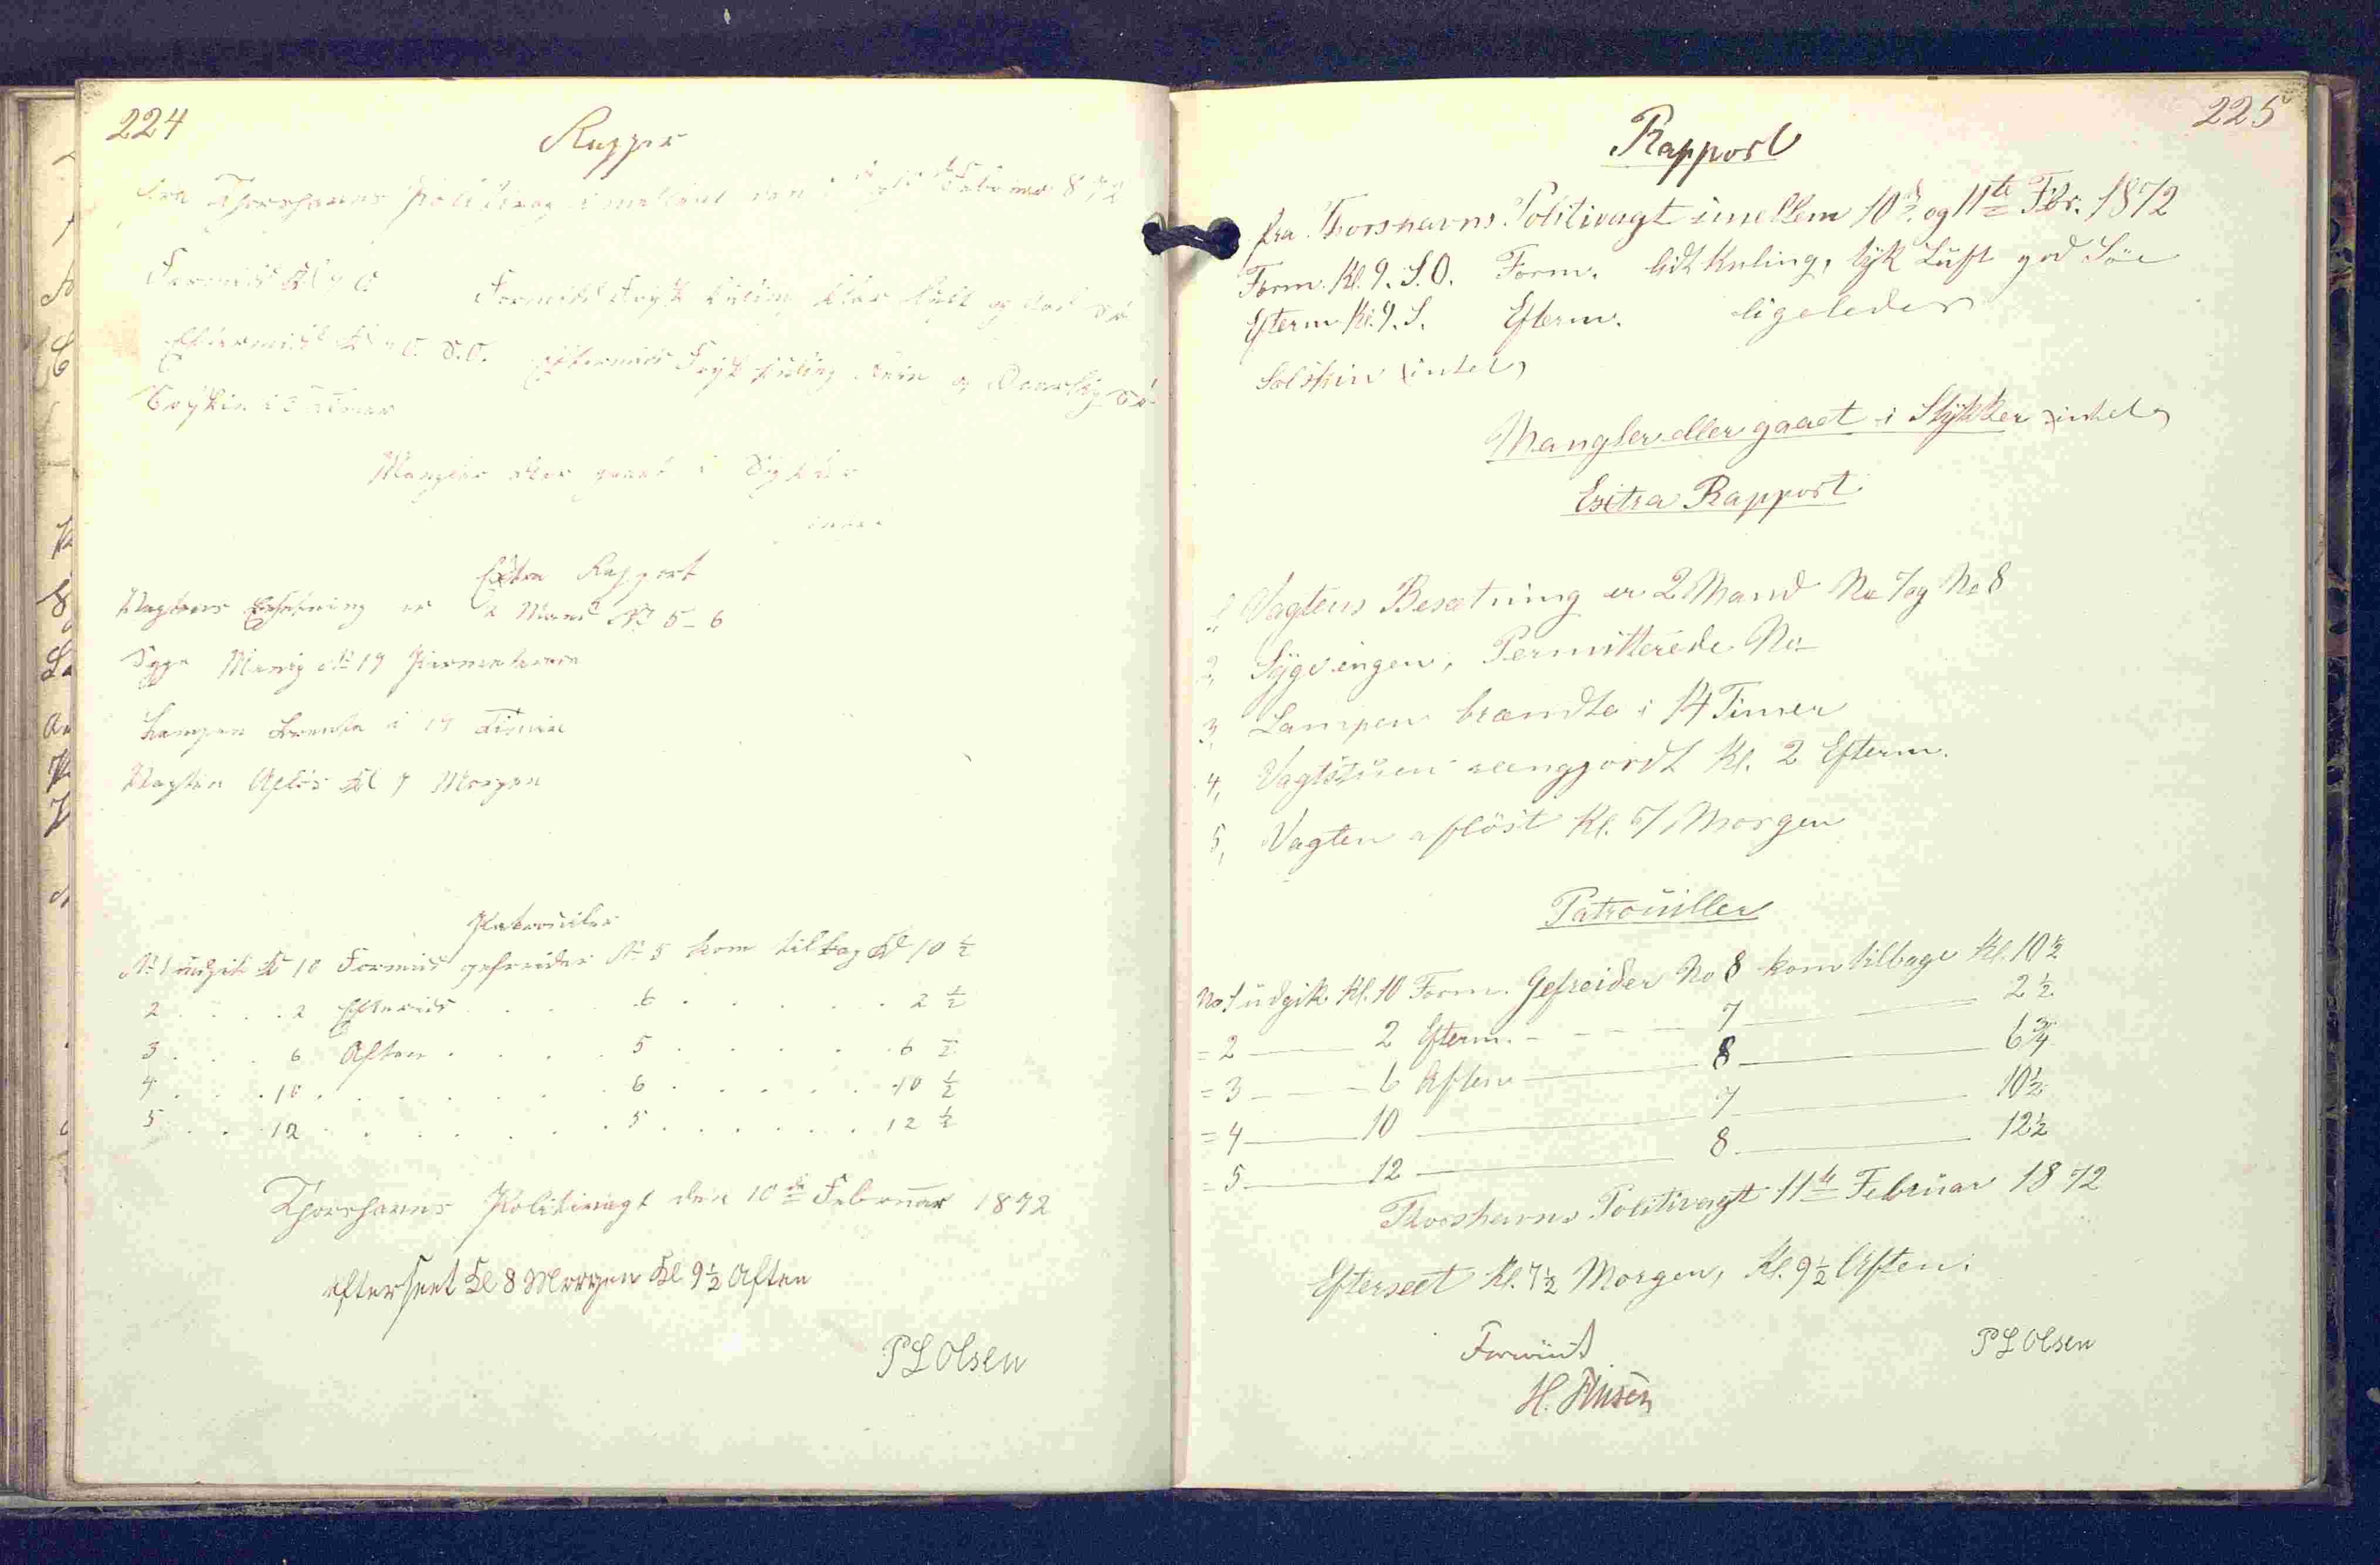 224
Rapport
fra Thorshavns Politivagt imellem den Februar 1872
Formid Kl 9 O. Formidd Frysk Kuling klar Luft og God Sø
Eftermidd Kl 9 S.O. Eftermidd Frysk Kuling og Daarlig Sø
Solskin i Timer
Mangler eller gaaet i Stykker
intet
Extra Rapport
Vagtens Besætning er 2 Mand No 5-6
Syge Menig No 19
Lampen brændte i 14 Timer
Vagten Afløs Kl 7 Morgen
Patrouiller
No 1 udgik Kl 10 Formid gefreider No 5 kom tilbag Kl 10 ½
2 . . . 2 Eftermid . . . 6 . . . 2 ½
3 . . . 6 Aften . . . 5 . . . 6 ½
4 . . . 10 . . . 6 . . . 10 ½
5 . . . 12 . . . 5 . . . 12 ½
Thorshavns Politivagt den 10de Februar 1872
efterseet Kl 8 Morgen Kl 9½ Aften
P L Olsen
225
Rapport
fra Thorshavns Politivagt imellem 10d. og 11te Fbr. 1872
Form. Kl. 9. S.O. Form. lidt Kuling, tyk Luft god Söe
Efterm Kl. 9. S. Efterm. ligeledes
Solskin (intet)
Mangler eller gaaet i Stykker (intet)
Extra Rapport
1, Vagtens Besætning er 2 Mand No 7 og No 8
2, Syge ingen, Permitterede No
3, Lampen brændte i 14 Timer
4, Vagtstuen reengjordt Kl. 2 Efterm.
5, Vagten aflöst Kl. 7 Morgen
Patrouiller
No 1 udgik Kl. 10 Form. Gefreider No 8 kom tilbage Kl. 10½
= 2 — 2 Efterm. — 7 — 2½
= 3 — 6 Aften — 8 — 6¾
= 4 — 10 — 7 — 10½
= 5 — 12 — 8 — 12½
Thorshavns Politivagt 11te Februar 1872
Efterseet Kl. 7½ Morgen, Kl. 9½ Aften.
P L Olsen
H.